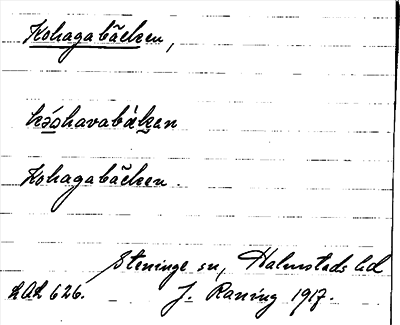 Kohagabäcken,
kǝ́ohavabäkan
Kohagabäcken.
Steninge sn, Halmstads hd
LAL 626. J. Raning 1917.